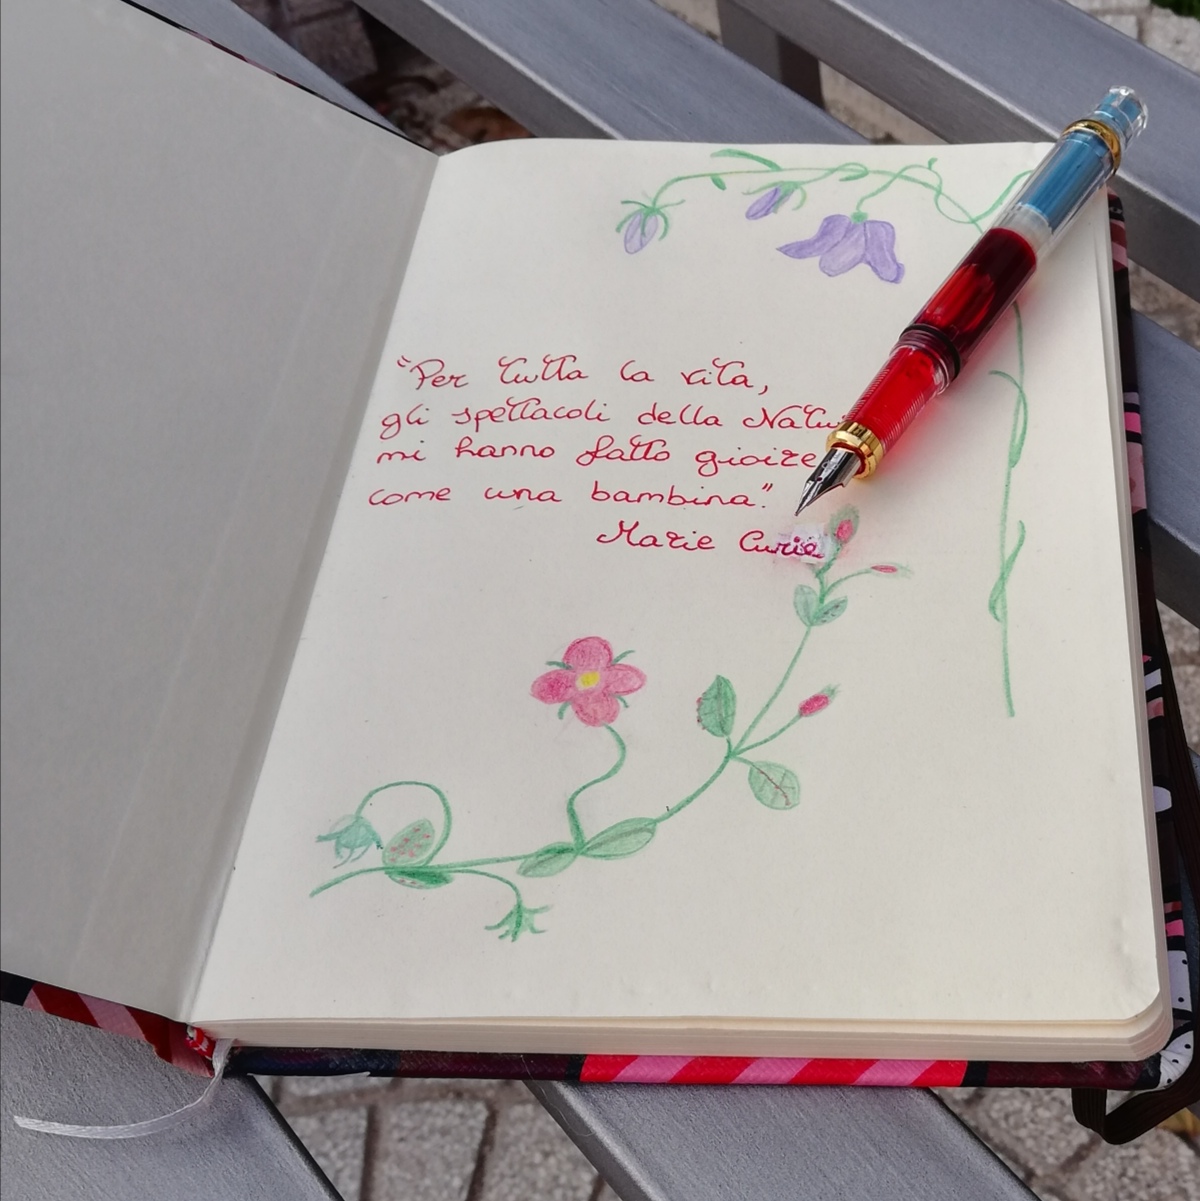 "Per tutta la vita,
gli spettacoli della Natu
mi hanno fatto gioire
come una bambina."
Marie Curie